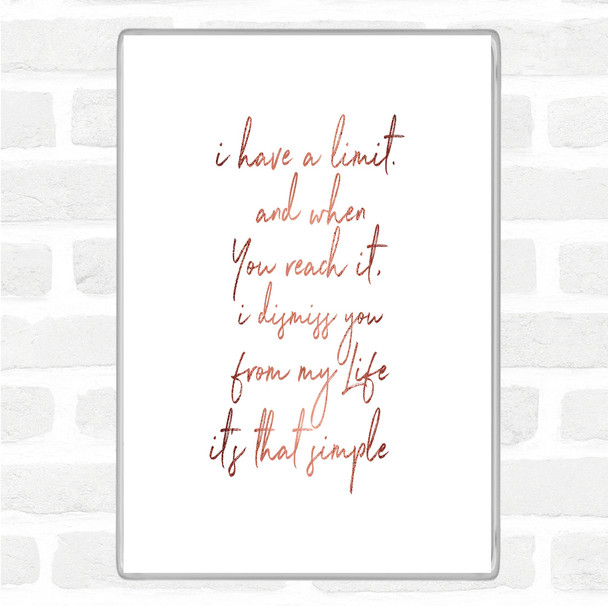 i have a limit.
and when
You reach it,
i dismiss you
from my Life
it's that simple